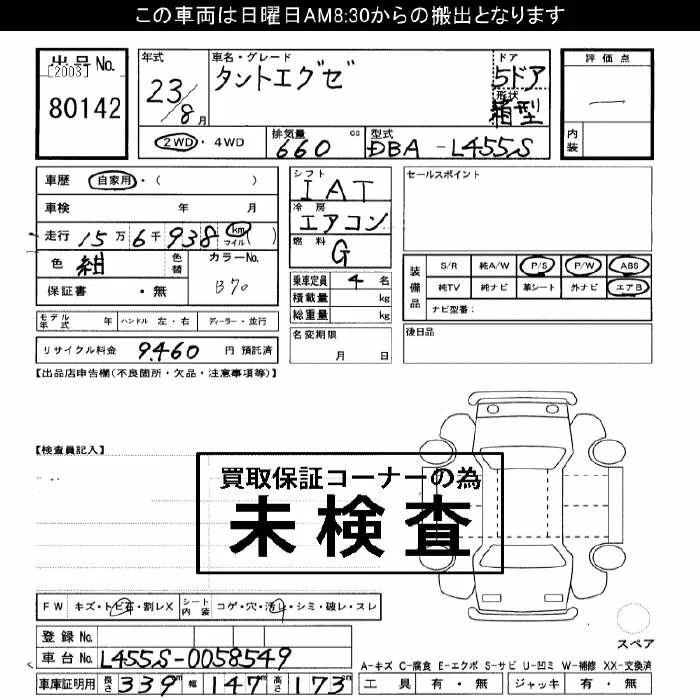 この車両は日曜日AM8:30からの搬出となります
出品No.
[2003]
80142
年式 23/8月
車名・グレード タントエグゼ
ドア 5ドア
形状 箱型
評価点 —
内装
2WD・4WD
排気量 660 cc
型式 DBA-L455S
車歴 自家用・( )
車検 年 月
走行 15万6千938 km マイル ( )
色 紺 色替
カラーNo. B70
保証書 ・無
シフト IAT
冷房 エアコン
燃料 G
乗車定員 4名
積載量 kg
総重量 kg
セールスポイント
装備品
S/R 純A/W P/S P/W ABS
純TV 純ナビ 革シート 外ナビ エアB
ナビ型番：
モデル年式 年 ハンドル 左・右 ディーラー・並行
リサイクル料金 9460 円 預託済
名変期限 月 日
後日品
【出品店申告欄(不良箇所・欠品・注意事項等)】
【検査員記入】
買取保証コーナーの為
未検査
FW キズ・トビ石・割レX シート内装 コゲ・穴・汚レ・シミ・破レ・スレ
登録No.
車台No. L455S-0058549
スペア
A-キズ C-腐食 E-エクボ S-サビ U-凹ミ W-補修 XX-交換済
車庫証明用 長さ 339m 幅 147m 高さ 173m
工具 有・無 ジャッキ 有・無